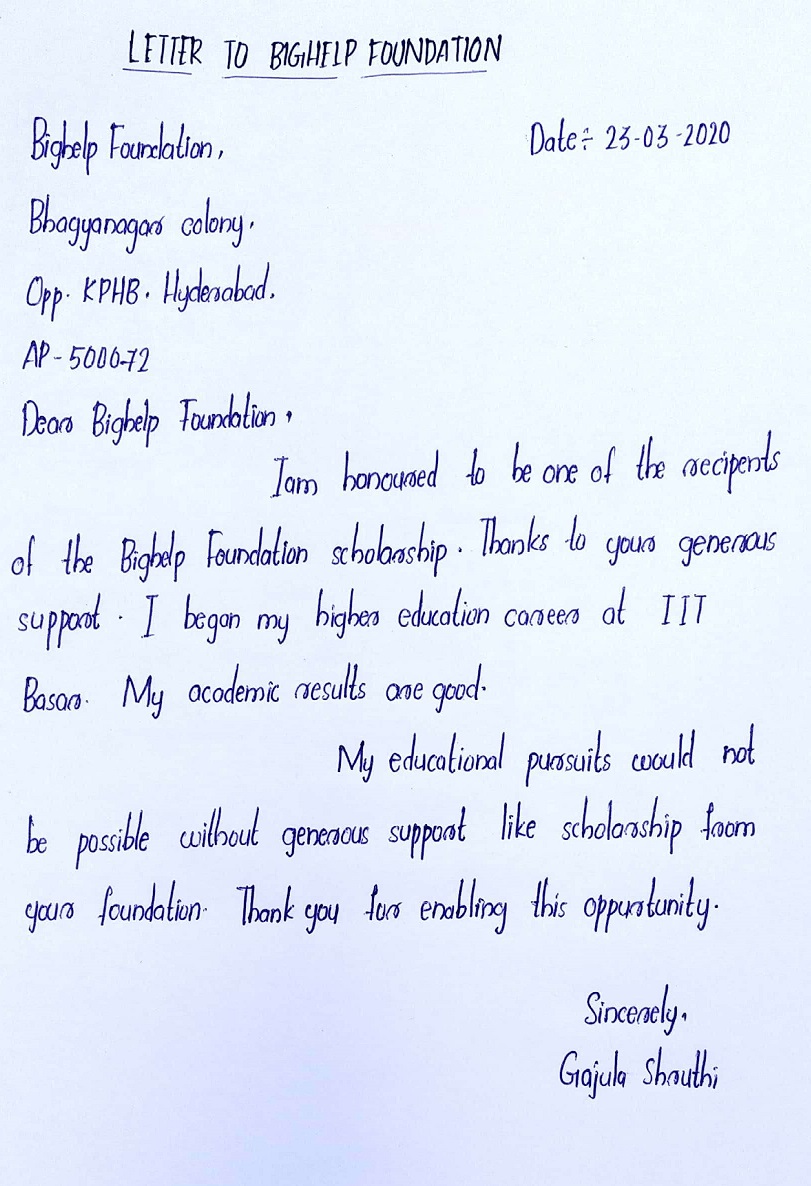 LETTER TO BIGHELP FOUNDATION
Bighelp Foundation,
Date÷ 23-03-2020
Bhagyanagar colony.
Opp. KPHB. Hyderabad.
AP-500072
Dear Bighelp Foundation,
Iam honoured to be one of the recipents
of the Bighelp Foundation scholarship. Thanks to your generous
support. I began my higher education career at IIT
Basar. My academic results are good.
My educational pursuits would not
be possible without generous support like scholarship from
your foundation. Thank you for enabling this oppurtunity.
Sincerely,
Gajula Shruthi